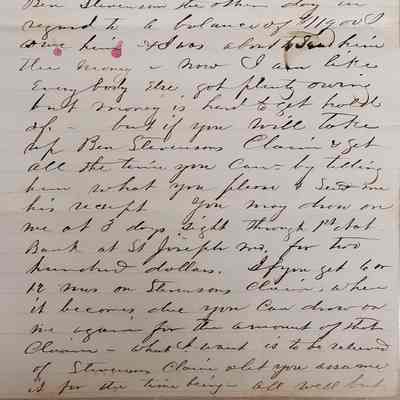 Ben Stevenson the other day in
regard to a balance of $119.00 I
owe him & I was about to send him
the money – now I am like
Everybody Else got plenty owing
but money is hard to get hold
of. – but if you will take
up Ben Stevensons Claim & get
all the time you Can – by telling
him what you please & send me
his receipt you may draw on
me at 3 days sight through 1st Nat
Bank at St Joseph Mo. for two
hundred dollars. If you get 6 or
12 mos on Stevensons Claim, when
it becomes due you Can draw on
me again for the amount of that
Claim – what I want is to be relieved
of Stevensons Claim & let you assume
it for the time being – all well but